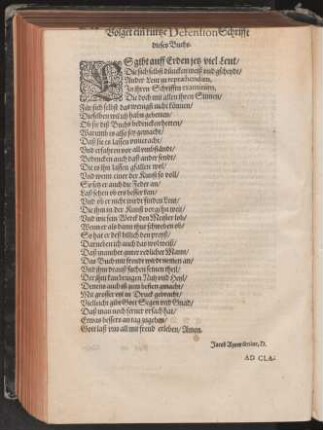 Volget ein kurtze Defension Schrifft
dieses Buchs.
ES gibt auff Erden jetz viel Leut/
Die sich selbst düncken weiß und gscheydt/
Ander Leut zu reprehendirn,
In ihren Schrifften examinirn,
Die doch mit allen ihren Sinnen/
Für sich selbst das wenigst nicht können/
Dieselben wil ich hahn gebetten/
Ob sie diß Buchs bedencken hetten/
Warumb es also sey gemacht/
Daß sie es lassen
Und erfahren vor all umbständt/
Bedencken auch daß ander sendt/
Die es ihn lassen gfallen wol/
Und wenn einer der Kunst so voll/
So setz er auch die Feder an/
Laß sehen ob ers besser kan/
Und ob er nicht wirdt finden Leut/
Die ihm in der Kunst vorgehn weit/
Und wie sein Werck den Meister lob/
Wenn er als dann
So hat er deß billich den preyß/
Darneben ich auch das wol weiß/
Daß mancher guter redlicher Mann/
Das Buch mit freudt wirdt nemen an/
Und ihm drauß suchen seinen theil/
Der ihm kan bringen Nutz und Heyl/
Denens auch ist zum besten gmacht/
Mit grosser müh in Druck gebracht/
Vielleicht gibt Gott Segen und Gnad/
Daß man noch ferner ursach hat/
Etwas bessers an tag zugeben/
Gott laß uns all mit freud erleben/ Amen.
Jacob
AD CLA-